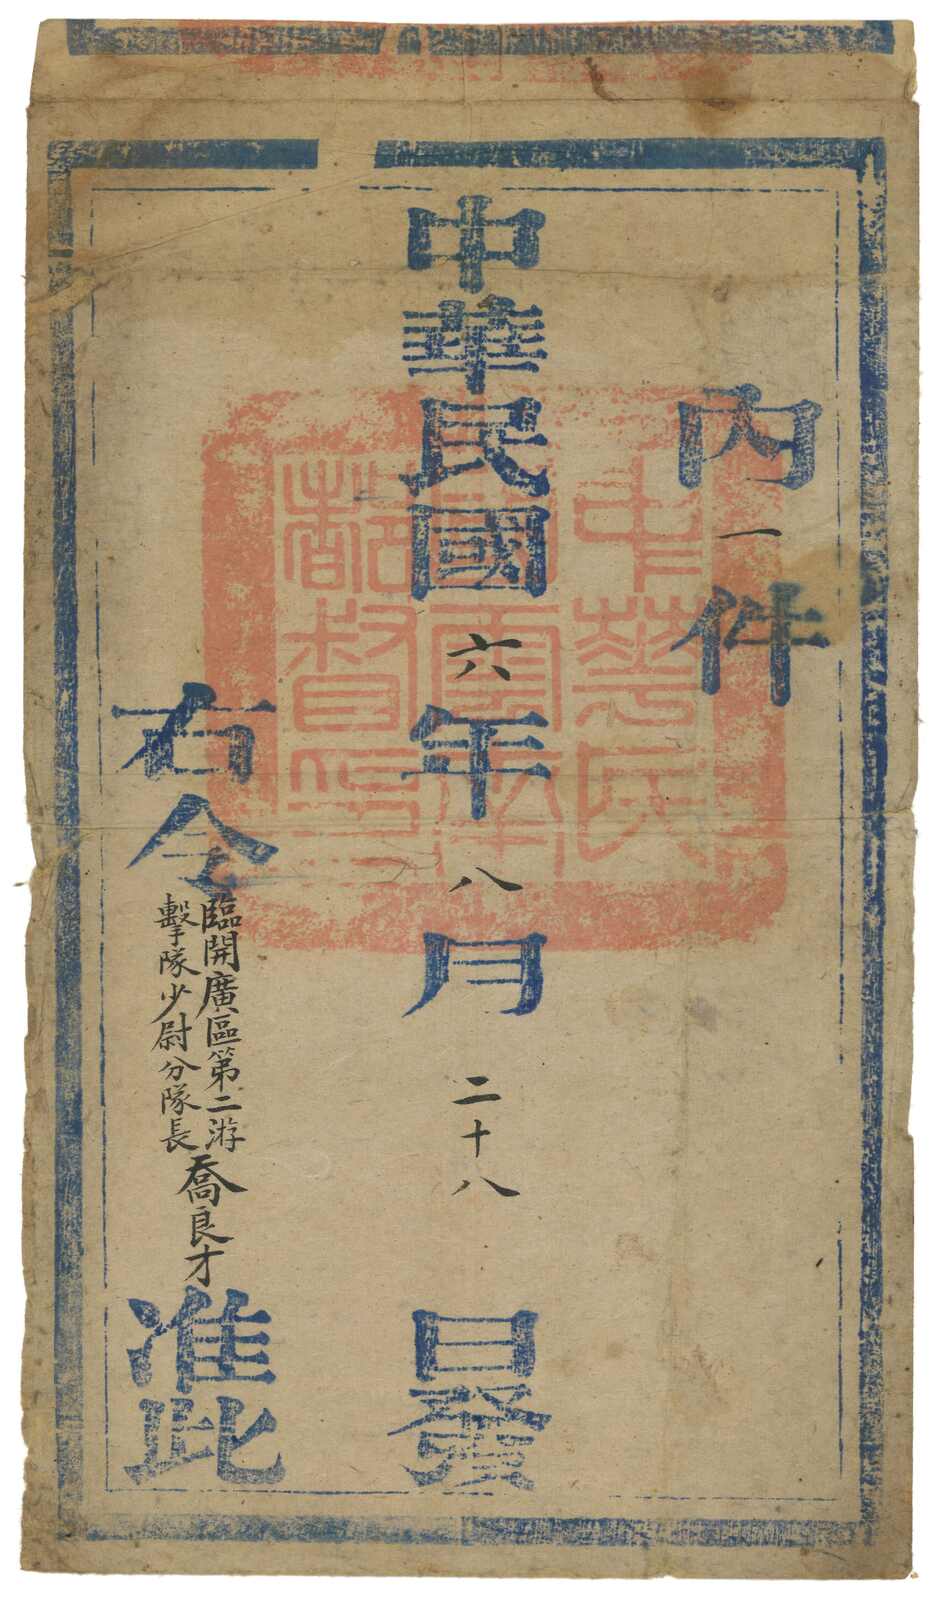 內一件
中華民國六年八月二十八日發
右令臨開廣區第二游
擊隊少尉分隊長喬良才准此
中華民
國雲南
都督印